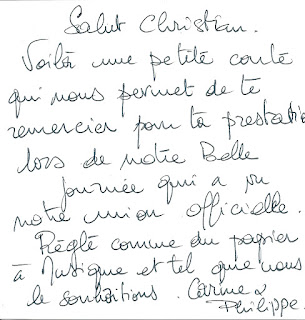 Salut Christian.
Voilà une petite carte
qui nous permet de te
remercier pour ta prestatio
lors de notre Belle
Journée qui a vu
notre union officielle.
Réglé comme du papier
à Musique et tel que nous
le souhaitions. Carine &
Philippe.